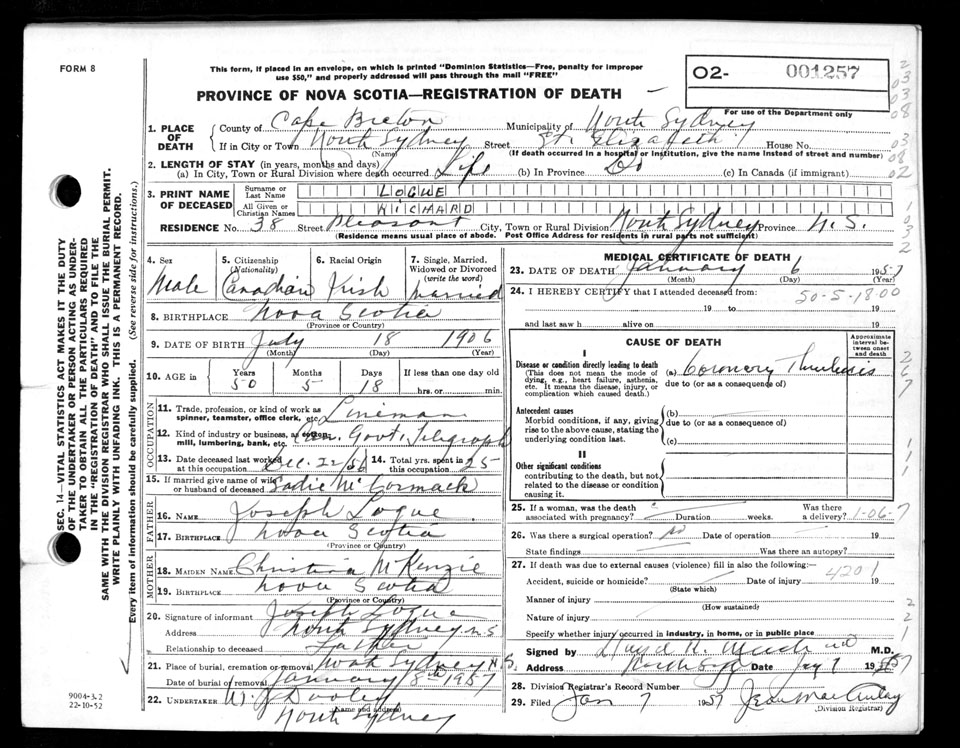 FORM 8
This form, if placed in an envelope, on which is printed "Dominion Statistics—Free, penalty for improper
use $50," and properly addressed will pass through the mail "FREE"
O2- 001257
For use of the Department only
PROVINCE OF NOVA SCOTIA—REGISTRATION OF DEATH
1. PLACE OF DEATH
County of Cape Breton Municipality of North Sydney
If in City or Town North Sydney Street St. Elizabeth House No.
(Name) (If death occurred in a hospital or institution, give the name instead of street and number)
2. LENGTH OF STAY (in years, months and days)
(a) In City, Town or Rural Division where death occurred Life (b) In Province Do (c) In Canada (if immigrant)
3. PRINT NAME OF DECEASED
Surname or Last Name LOGUE
All Given or Christian Names RICHARD
RESIDENCE No. 38 Street Pleasant City, Town or Rural Division North Sydney Province N.S.
(Residence means usual place of abode. Post Office Address for residents in rural parts not sufficient)
4. Sex Male
5. Citizenship (Nationality) Canadian
6. Racial Origin Irish
7. Single, Married, Widowed or Divorced (write the word) Married
8. BIRTHPLACE Nova Scotia
(Province or Country)
9. DATE OF BIRTH July 18 1906
(Month) (Day) (Year)
10. AGE in Years Months Days If less than one day old
50 5 18 hrs. or min.
OCCUPATION
11. Trade, profession, or kind of work as spinner, teamster, office clerk, etc. Lineman
12. Kind of industry or business, as cotton mill, lumbering, bank, etc. Can. Govt. Telegraph
13. Date deceased last worked at this occupation Dec. 22/56 14. Total yrs. spent in this occupation 25
15. If married give name of wife or husband of deceased Sadie McCormack
FATHER
16. NAME Joseph Logue
17. BIRTHPLACE Nova Scotia
(Province or Country)
MOTHER
18. MAIDEN NAME Christina McKenzie
19. BIRTHPLACE Nova Scotia
(Province or Country)
20. Signature of informant Joseph Logue
Address North Sydney N S
Relationship to deceased Father
21. Place of burial, cremation or removal North Sydney N.S.
Date of burial or removal January 8th 1957
22. UNDERTAKER W. J. Dooley
(Name and address)
North Sydney
MEDICAL CERTIFICATE OF DEATH
23. DATE OF DEATH January 6 1957
(Month) (Day) (Year)
24. I HEREBY CERTIFY that I attended deceased from 50-5-18.00
19 to 19
and last saw h alive on 19
CAUSE OF DEATH
Approximate interval between onset and death
I
Disease or condition directly leading to death (a) Coronary Thrombosis
(This does not mean the mode of dying, e.g., heart failure, asthenia, etc. It means the disease, injury, or complication which caused death.)
due to (or as a consequence of)
Antecedent causes
Morbid conditions, if any, giving rise to the above cause, stating the underlying condition last.
(b)
due to (or as a consequence of)
(c)
II
Other significant conditions
contributing to the death, but not related to the disease or condition causing it.
25. If a woman, was the death associated with pregnancy? Duration weeks. Was there a delivery? 1-06-7
26. Was there a surgical operation? no Date of operation 19
State findings Was there an autopsy?
27. If death was due to external causes (violence) fill in also the following:—
Accident, suicide or homicide? Date of injury 4201 19
(State which)
Manner of injury
(How sustained)
Nature of injury
Specify whether injury occurred in industry, in home, or in public place
Signed by M.D.
Address North Syd Date Jan 7 1957
28. Division Registrar's Record Number
29. Filed Jan 7 1957 Jean MacAulay
(Division Registrar)
SEC. 14—VITAL STATISTICS ACT MAKES IT THE DUTY
OF THE UNDERTAKER OR PERSON ACTING AS UNDER-
TAKER TO OBTAIN ALL THE PARTICULARS REQUIRED
IN THE "REGISTRATION OF DEATH" AND TO FILE THE
SAME WITH THE DIVISION REGISTRAR WHO SHALL ISSUE THE BURIAL PERMIT.
WRITE PLAINLY WITH UNFADING INK. THIS IS A PERMANENT RECORD.
Every item of information should be carefully supplied. (See reverse side for instructions.)
9004-3.2
22-10-52